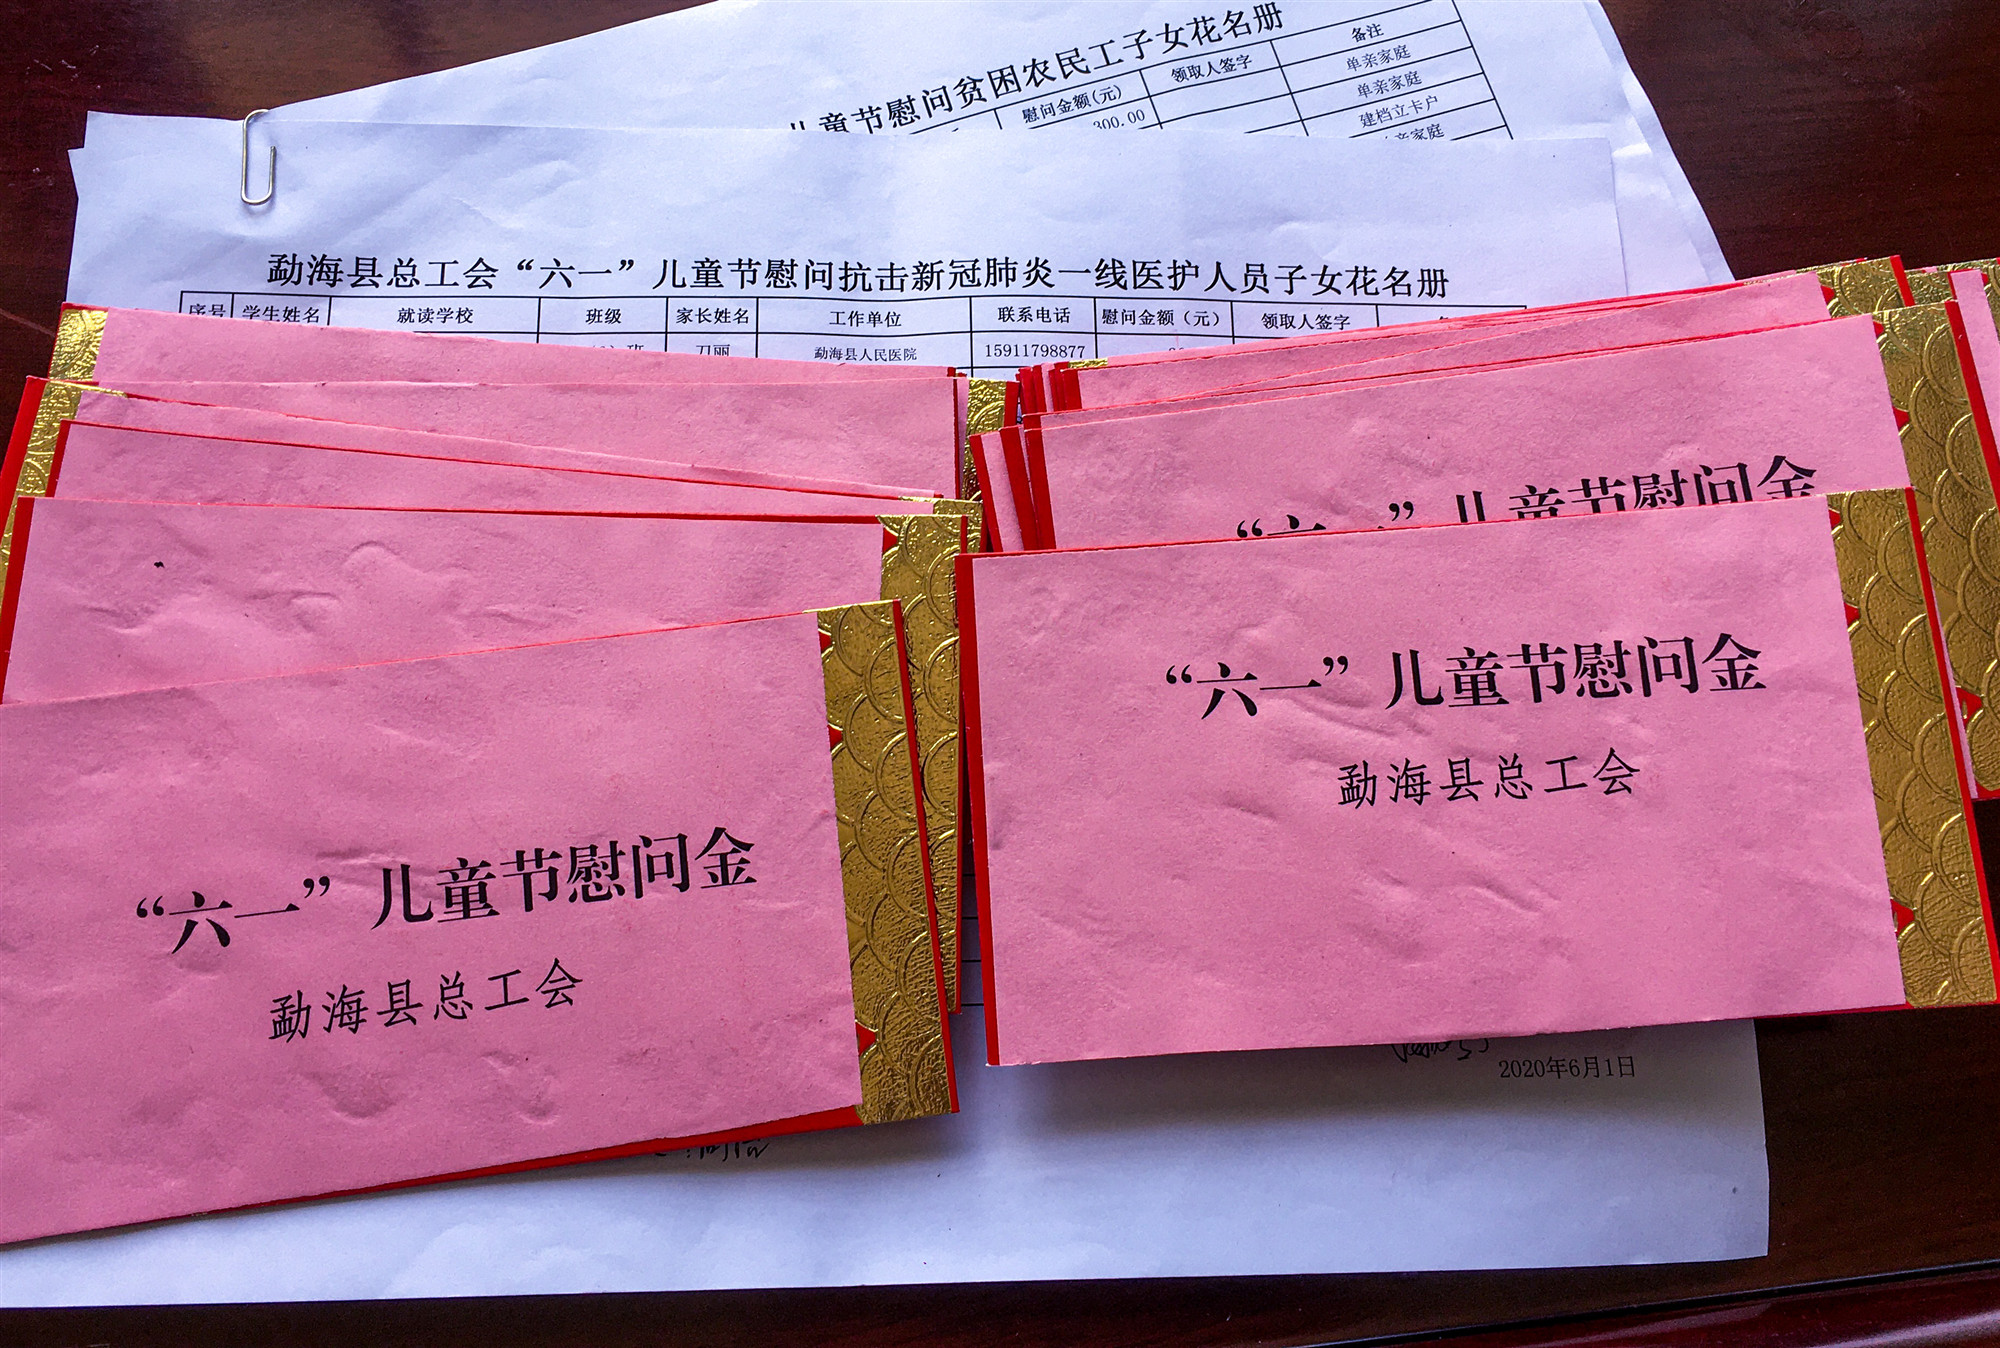 儿童节慰问贫困农民工子女花名册
慰问金额(元) 领取人签字 备注
300.00 单亲家庭
单亲家庭
建档立卡户
亲家庭
勐海县总工会“六一”儿童节慰问抗击新冠肺炎一线医护人员子女花名册
序号 学生姓名 就读学校 班级 家长姓名 工作单位 联系电话 慰问金额（元） 领取人签字
班 刀丽 勐海县人民医院 15911798877
“六一”儿童节慰问金
“六一”儿童节慰问金
勐海县总工会
“六一”儿童节慰问金
勐海县总工会
2020年6月1日